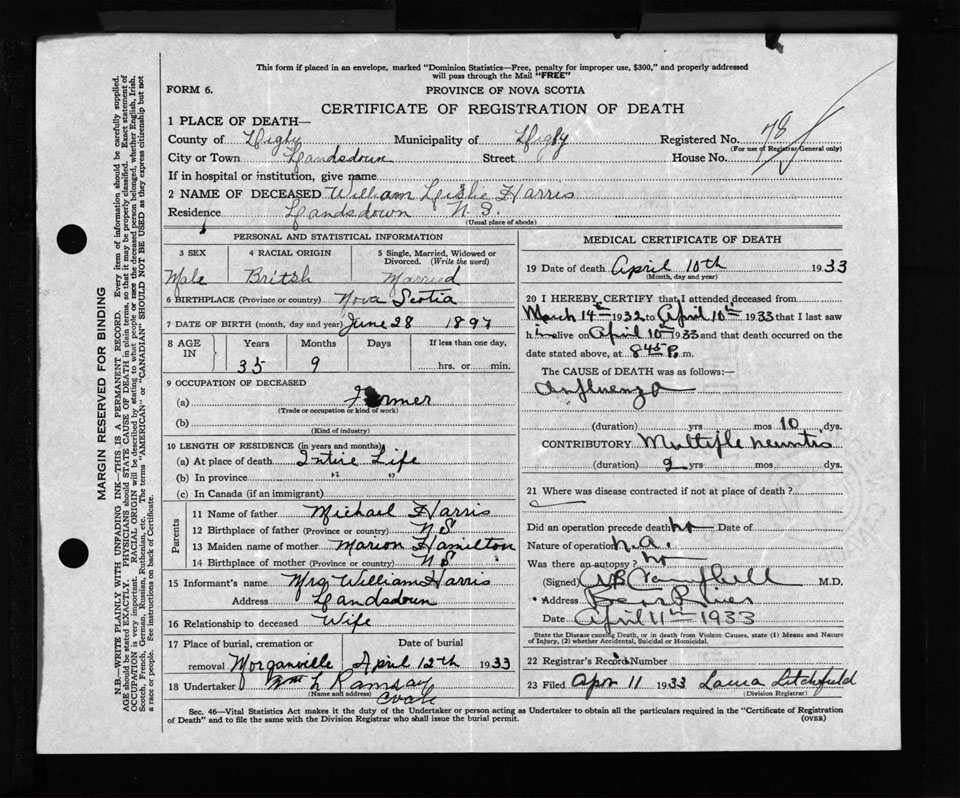 This form if placed in an envelope, marked "Dominion Statistics—Free, penalty for improper use, $300," and properly addressed
will pass through the Mail "FREE"
FORM 6.
PROVINCE OF NOVA SCOTIA
CERTIFICATE OF REGISTRATION OF DEATH
1 PLACE OF DEATH—
County of Digby Municipality of Digby Registered No. 78
(For use of Registrar General only)
City or Town Landsdown Street House No.
If in hospital or institution, give name
2 NAME OF DECEASED William Leslie Harris
Residence Landsdown N.S.
(Usual place of abode)
PERSONAL AND STATISTICAL INFORMATION
3 SEX 4 RACIAL ORIGIN 5 Single, Married, Widowed or
Divorced. (Write the word)
Male Britsh Married
6 BIRTHPLACE (Province or country) Nova Scotia
7 DATE OF BIRTH (month, day and year) June 28 1897
8 AGE IN Years Months Days If less than one day,
35 9 hrs. or min.
9 OCCUPATION OF DECEASED
(a) Farmer
(Trade or occupation or kind of work)
(b)
(Kind of industry)
10 LENGTH OF RESIDENCE (in years and months)
(a) At place of death Intire Life
(b) In province " "
(c) In Canada (if an immigrant)
Parents
11 Name of father Michael Harris
12 Birthplace of father (Province or country) N S
13 Maiden name of mother Marion Hamilton
14 Birthplace of mother (Province or country) N S
15 Informant's name Mrs William Harris
Address Landsdoun
16 Relationship to deceased Wife
17 Place of burial, cremation or Date of burial
removal Morganville April 12th 1933
18 Undertaker Wm L Ramsay
(Name and address)
MEDICAL CERTIFICATE OF DEATH
19 Date of death April 10th 1933
(Month, day and year)
20 I HEREBY CERTIFY that I attended deceased from
March 14th 1932 to April 10th 1933 that I last saw
h im alive on April 10th 1933 and that death occurred on the
date stated above, at 8 45 P. m.
The CAUSE OF DEATH was as follows:—
Influenza
(duration) yrs mos 10 dys.
CONTRIBUTORY Multiple neuritis
(duration) 2 yrs mos dys.
21 Where was disease contracted if not at place of death?
Did an operation precede death no Date of
Nature of operation n.a.
Was there an autopsy? no
(Signed) Campbell M.D.
Address Bear River
Date April 11th 1933
State the Disease causing Death, or in death from Violent Causes, state (1) Means and Nature
of Injury, (2) whether Accidental, Suicidal or Homicidal.
22 Registrar's Record Number
23 Filed Apr 11 1933 Laura Litchfield
(Division Registrar)
Sec. 46—Vital Statistics Act makes it the duty of the Undertaker or person acting as Undertaker to obtain all the particulars required in the "Certificate of Registration
of Death" and to file the same with the Division Registrar who shall issue the burial permit. (OVER)
MARGIN RESERVED FOR BINDING
N.B.—WRITE PLAINLY WITH UNFADING INK—THIS IS A PERMANENT RECORD. Every item of information should be carefully supplied.
AGE should be stated EXACTLY. PHYSICIANS should STATE CAUSE OF DEATH in plain terms, so that it may be properly classified. Exact statement of
OCCUPATION is very important. RACIAL ORIGIN will be described by stating to what people or race the deceased person belonged, whether English, Irish,
Scotch, French, German, Russian, Ruthenian, etc. The terms "AMERICAN" or "CANADIAN" SHOULD NOT BE USED as they express citizenship but not
a race or people. See instructions on back of Certificate.